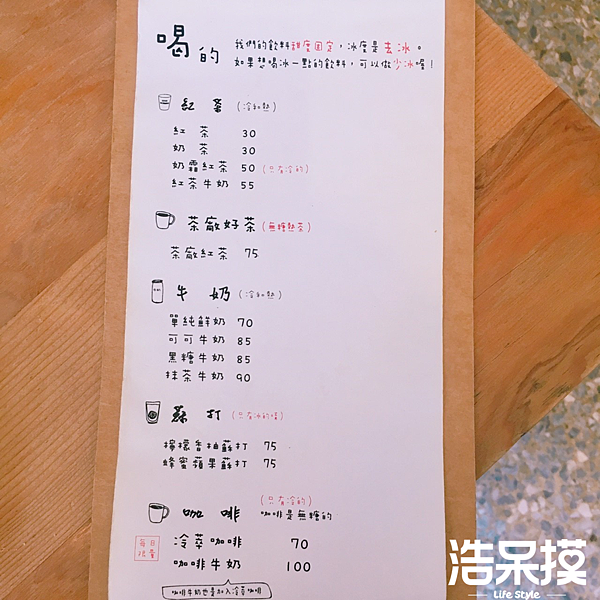 喝的
我們的飲料甜度固定，冰度是去冰。
如果想喝冰一點的飲料，可以做少冰喔！
紅茶（冷和熱）
紅茶 30
奶茶 30
奶霜紅茶 50（只有冷的）
紅茶牛奶 55
茶廠好茶（無糖熱茶）
茶廠紅茶 75
牛奶（冷和熱）
單純鮮奶 70
可可牛奶 85
黑糖牛奶 85
抹茶牛奶 90
蘇打（只有冰的喔）
檸檬香柚蘇打 75
蜂蜜蘋果蘇打 75
咖啡（只有冷的）
咖啡是無糖的
每日限量
冷萃咖啡 70
咖啡牛奶 100
咖啡牛奶也是加入冷萃咖啡
浩呆摸
Life Style